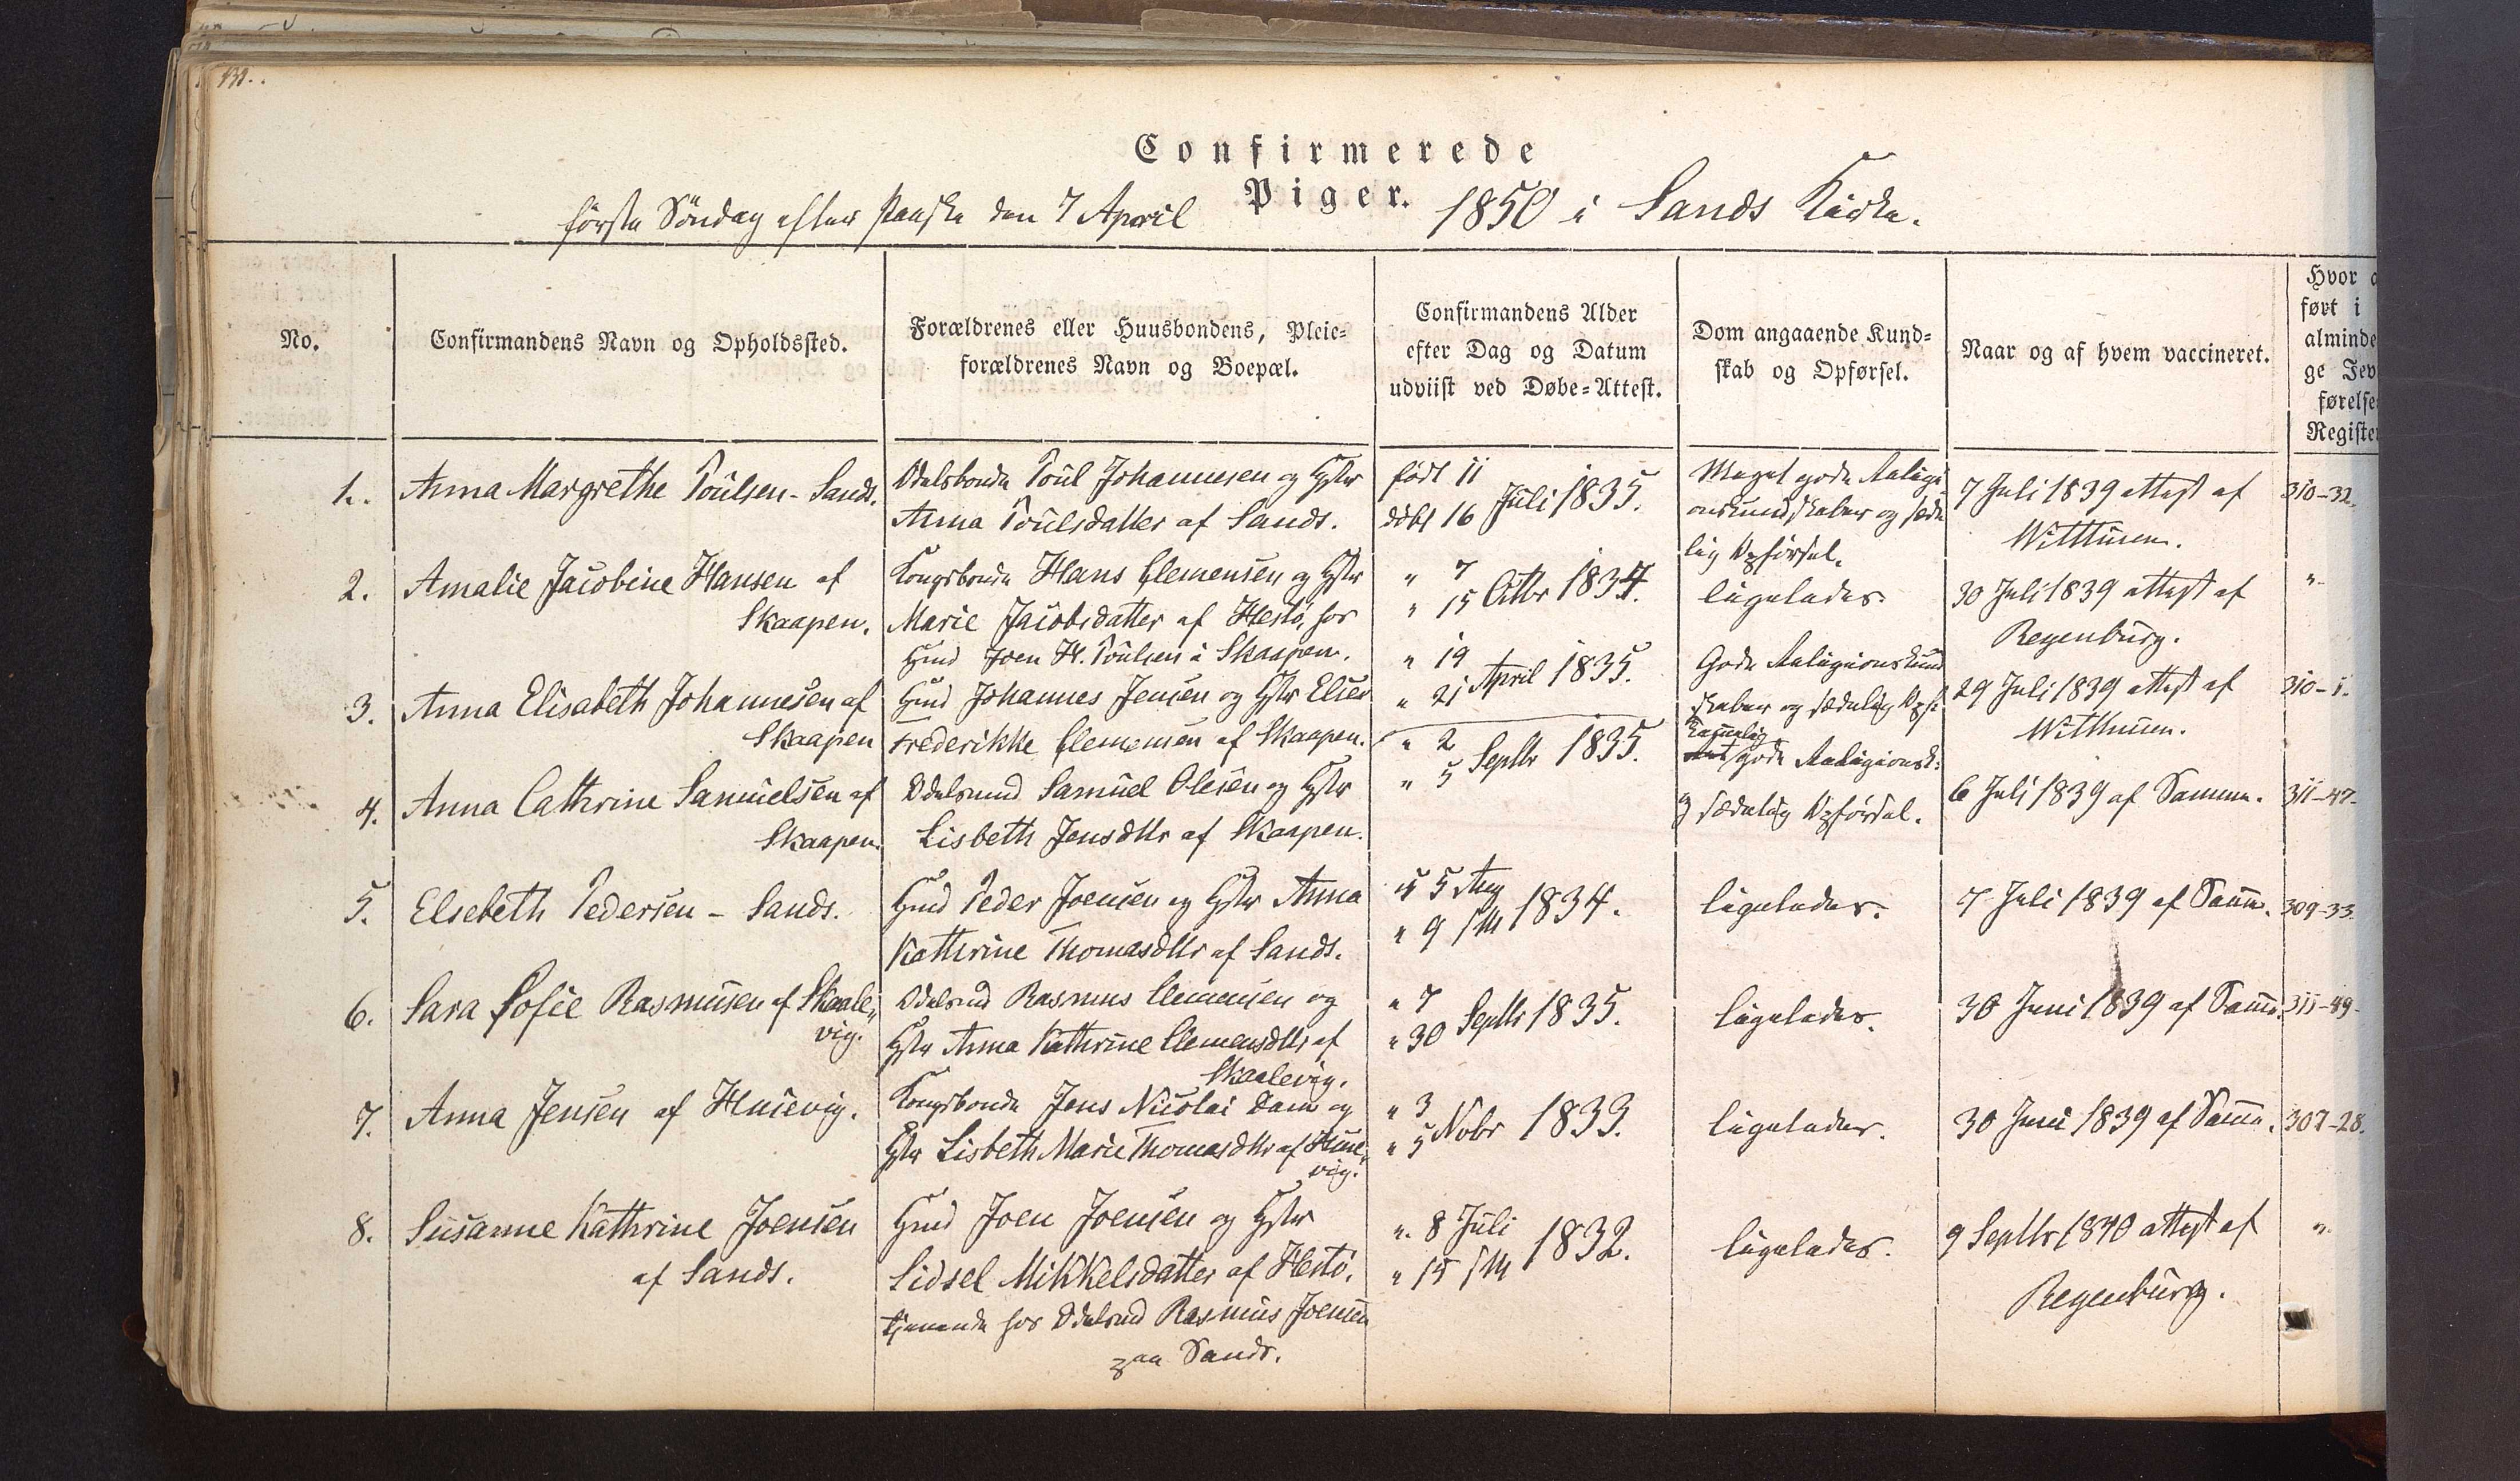 Confirmerede
Piger.
første Söndag efter Paaske den 7 April 1850 i Sands Kirke.
No.
Confirmandens Navn og Opholdssted.
Forældrenes eller Huusbondens, Pleie-
forældrenes Navn og Boepæl.
Confirmandens Alder
efter Dag og Datum
udviist ved Døbe-Attest.
Dom angaaende Kund-
skab og Opførsel.
Naar og af hvem vaccineret.
Hvor
ført i
alminde
ge Jev
førelse
Registe
1. Anna Margrethe Poulsen - Sands.
Odelsbonde Poul Johannesen og Hstr
Anna Poulsdatter af Sands.
født 11
döbt 16 Juli 1835.
Meget gode Religi-
onskundskaber og sæde
lig Opförsel.
7 Juli 1839 attest af
Witthusen.
310-32.
2. Amalie Jacobine Hansen af
Skaapen.
Kongsbonde Hans Clemensen og Hstr
Marie Jacobsdatter af Hestö, hos
Hmd Joen H. Poulsen i Skaapen.
" 7
" 15 Octbr 1834.
ligeledes.
30 Juli 1839 attest af
Regenburg.
"
3. Anna Elisabeth Johannesen af
Skaapen
Hmd Johannes Jensen og Hstr
Frederikke Clemensen af Skaapen.
" 19
" 21 April 1835.
Gode Religionskund
skaber og sædelig Opf.
29 Juli 1839 attest af
Witthusen.
310-1.
4. Anna Cathrine Samuelsen af
Skaapen.
Odelsmd Samuel Olesen og Hstr
Lisbeth Jensdttr af Skaapen.
" 2
" 5 Septbr 1835.
temmelig
gode Religionsk:
og sædelig Opförsel.
6 Juli 1839 af Samme.
311-47-
5. Elsebeth Pedersen - Sands.
Hmd Peder Joensen og Hstr Anna
Kathrine Thomasdttr af Sands.
" 5 Aug
" 9 1834.
ligeledes.
7 Juli 1839 af Samme.
309-33.
6. Sara Sofie Rasmusen af Skaale-
vig.
Odelsmd Rasmus Clemensen og
Hstr Anna Kathrine Clemensdttr af
Skaalevig.
" 7
" 30 Septbr 1835.
ligeledes.
30 Juni 1839 af Samme.
311-49-
7. Anna Jensen af Husevig.
Kongsbonde Jens Nicolai Dam og
Hstr Lisbeth Marie Thomasdttr af Huse-
vig.
" 3
" 5 Nobr 1833.
ligeledes.
30 Juni 1839 af Samme.
307-28.
8. Susanne Kathrine Joensen
af Sands.
Hmd Joen Joensen og Hstr
Sidsel Mikkelsdatter af Hestö,
tjenende hos Odelsmd Rasmus Joensen
paa Sands.
" 8 Juli
" 15 1832.
ligeledes.
9 Septbr 1840 attest af
Regenburg.
"